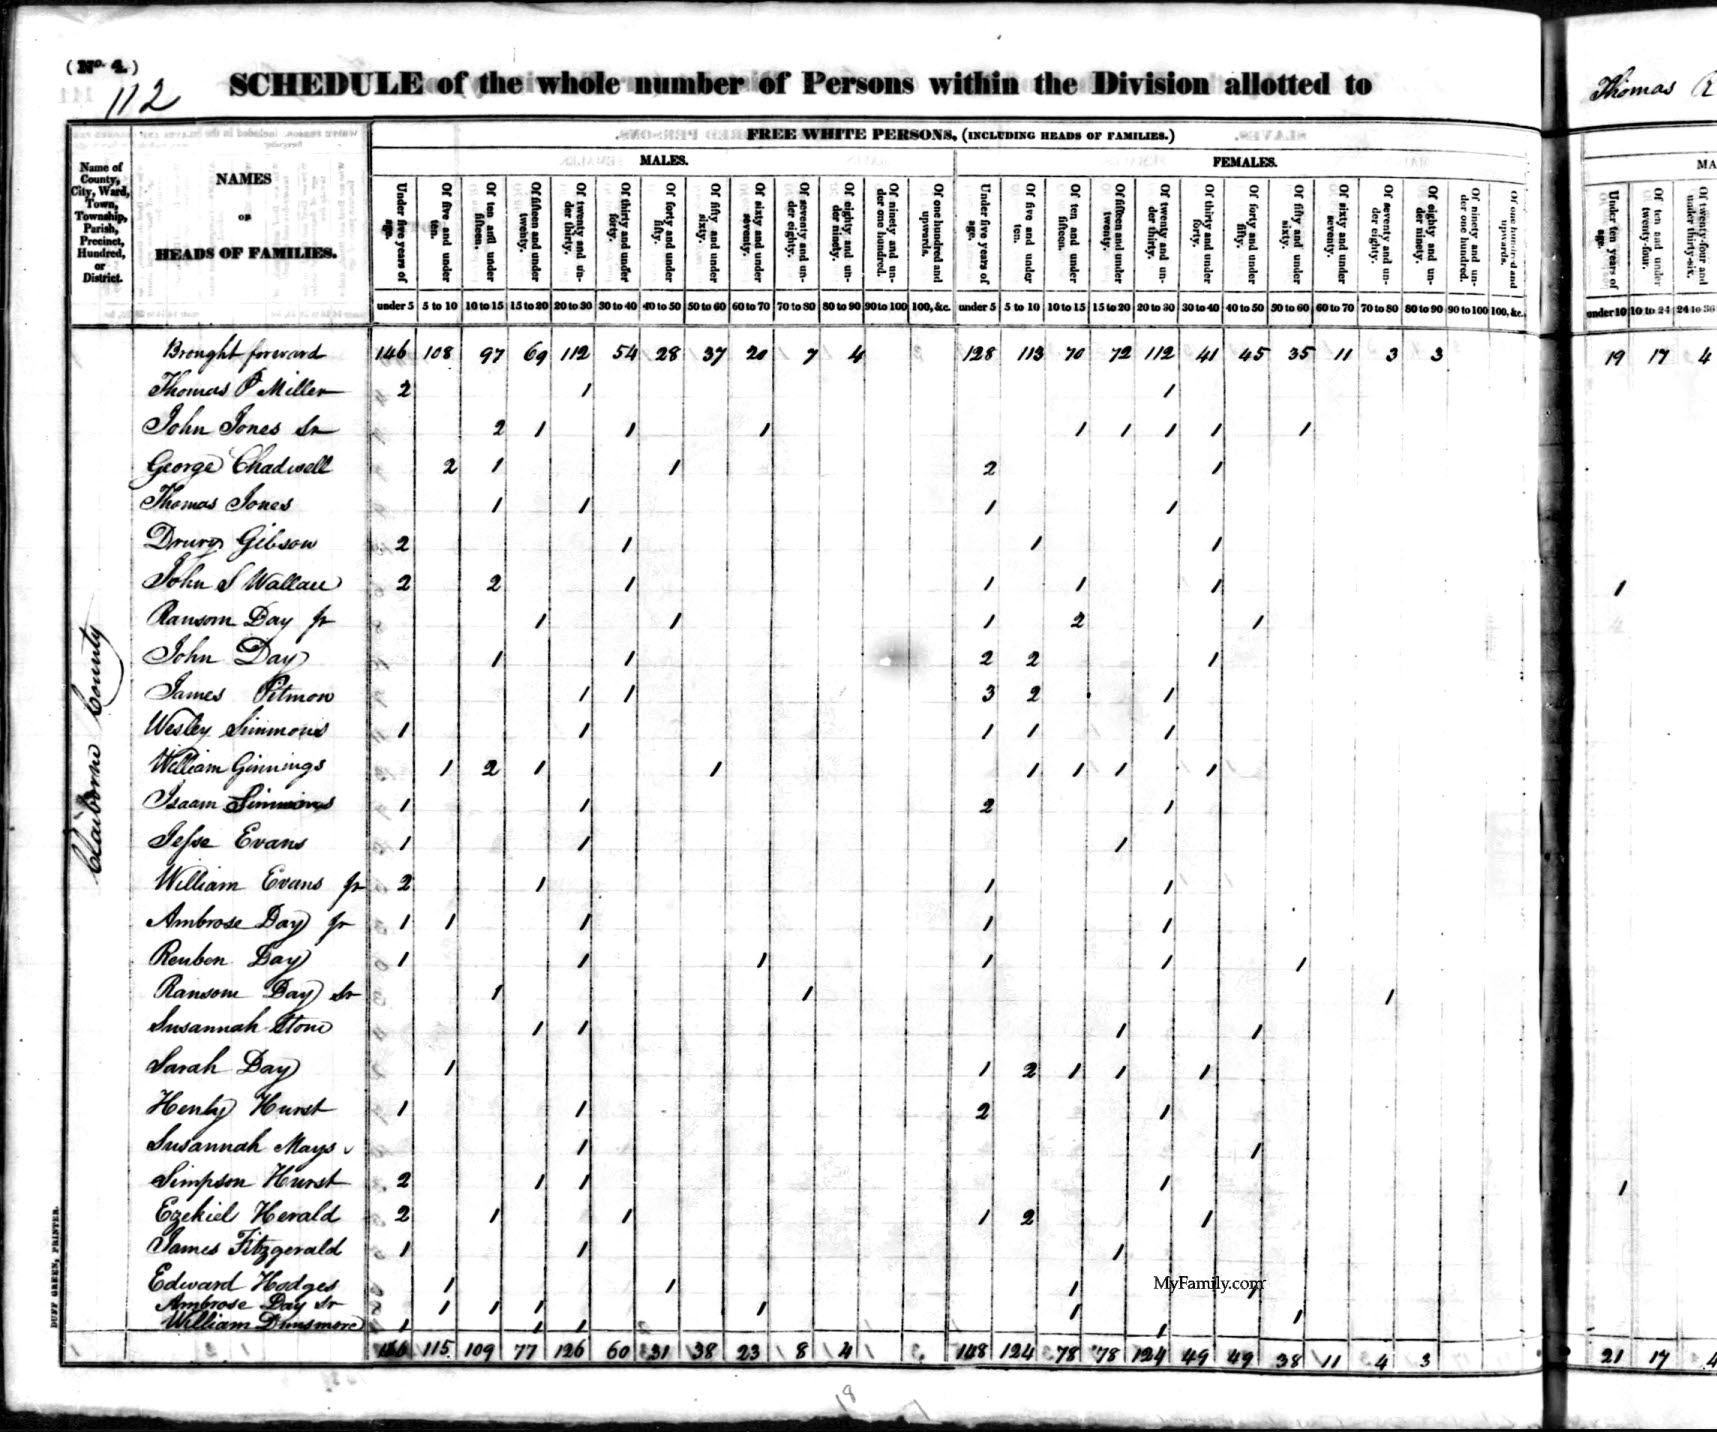 (No. 4.)
112
SCHEDULE of the whole number of Persons within the Division allotted to
Thomas
Name of County, City, Ward, Town, Township, Parish, Precinct, Hundred, or District.
NAMES
OF
HEADS OF FAMILIES.
FREE WHITE PERSONS, (INCLUDING HEADS OF FAMILIES.)
MALES. FEMALES.
MA
Under five years of age. Of five and under ten. Of ten and under fifteen. Of fifteen and under twenty. Of twenty and under thirty. Of thirty and under forty. Of forty and under fifty. Of fifty and under sixty. Of sixty and under seventy. Of seventy and under eighty. Of eighty and under ninety. Of ninety and under one hundred. Of one hundred and upwards. Under five years of age. Of five and under ten. Of ten and under fifteen. Of fifteen and under twenty. Of twenty and under thirty. Of thirty and under forty. Of forty and under fifty. Of fifty and under sixty. Of sixty and under seventy. Of seventy and under eighty. Of eighty and under ninety. Of ninety and under one hundred. Of one hundred and upwards. Under ten years of age. Of ten and under twenty-four. Of twenty-four and under thirty-six.
under 5 5 to 10 10 to 15 15 to 20 20 to 30 30 to 40 40 to 50 50 to 60 60 to 70 70 to 80 80 to 90 90 to 100 100, &c. under 5 5 to 10 10 to 15 15 to 20 20 to 30 30 to 40 40 to 50 50 to 60 60 to 70 70 to 80 80 to 90 90 to 100 100, &c. under 10 10 to 24 24 to 36
Brought forward 146 108 97 69 112 54 28 37 20 7 4 128 113 70 72 112 41 45 35 11 3 3 19 17 4
Thomas P Miller 2 1 1
John Jones Sr 2 1 1 1 1 1 1 1 1
George Chadwell 2 1 1 2 1
Thomas Jones 1 1 1 1
Drury Gibson 2 1 1 1
John S Wallace 2 2 1 1 1 1 1
Ransom Day Jr 1 1 1 2 1
John Day 1 1 2 2 1
James Pitmon 1 1 3 2 1
Wesley Simmons 1 1 1 1 1
William Ginnings 1 2 1 1 1 1 1 1
Isaam Simmons 1 1 2 1
Jesse Evans 1 1 1
William Evans Jr 2 1 1 1
Ambrose Day Jr 1 1 1 1 1
Reuben Day 1 1 1 1 1 1
Ransom Day Sr 1 1 1
Susannah Stone 1 1 1 1
Sarah Day 1 1 2 1 1 1
Henly Hurst 1 1 2 1
Susannah Mays 1 1
Simpson Hurst 2 1 1 1 1
Ezekiel Herald 2 1 1 1 2 1
James Fitzgerald 1 1 1
Edward Hodges 1 1 1 1
Ambrose Day Sr 1 1 1 1 1 1
William Dunsmore 1 1 1 1
115 109 77 126 60 31 38 23 8 4 148 124 78 78 124 49 49 38 11 4 3 21 17 4
Claiborne County
DUFF GREEN, PRINTER.
MyFamily.com